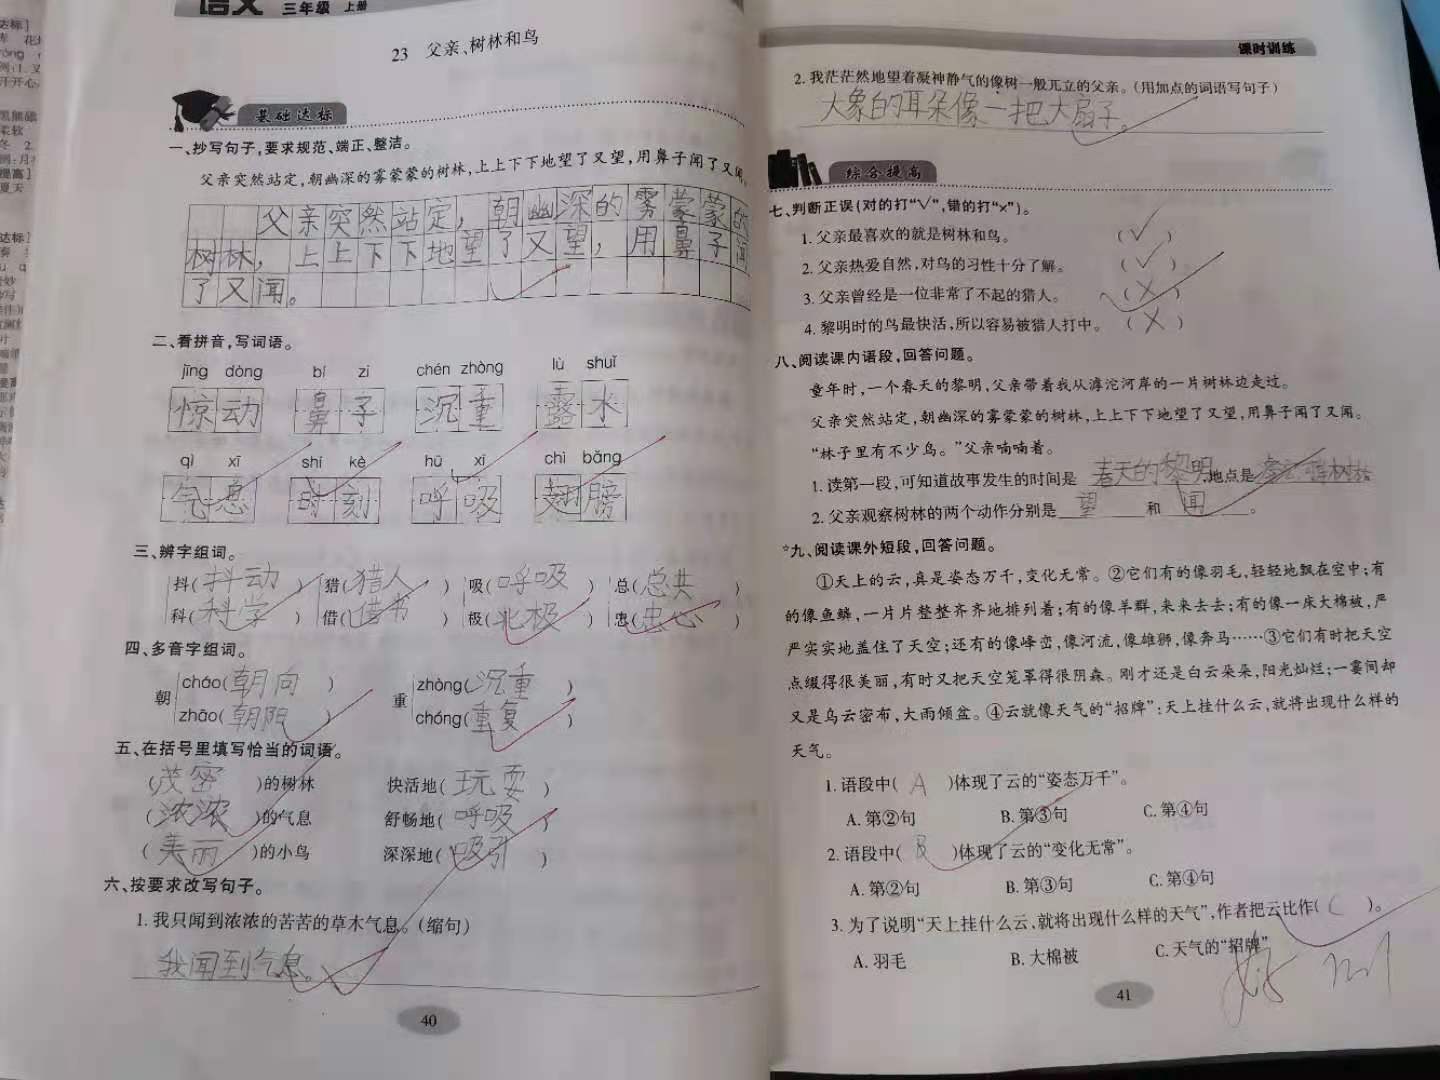 语文 三年级 上册
23 父亲、树林和鸟
基础达标
一、抄写句子,要求规范、端正、整洁。
父亲突然站定,朝幽深的雾蒙蒙的树林,上上下下地望了又望,用鼻子闻了又闻。
父亲突然站定,朝幽深的雾蒙蒙的
树林,上上下下地望了又望,用鼻子闻
了又闻。
二、看拼音,写词语。
jīng dòng bí zi chén zhòng lù shuǐ
惊动 鼻子 沉重 露水
qì xī shí kè hū xī chì bǎng
气息 时刻 呼吸 翅膀
三、辨字组词。
抖(抖动) 猎(猎人) 吸(呼吸) 总(总共)
科(科学) 借(借书) 极(北极) 忠(忠心)
四、多音字组词。
朝 cháo(朝向) 重 zhòng(沉重)
zhāo(朝阳) chóng(重复)
五、在括号里填写恰当的词语。
(茂密)的树林 快活地(玩耍)
(浓浓)的气息 舒畅地(呼吸)
(美丽)的小鸟 深深地(吸引)
六、按要求改写句子。
1. 我只闻到浓浓的苦苦的草木气息。(缩句)
我闻到气息。
40
课时训练
2. 我茫茫然地望着凝神静气的像树一般兀立的父亲。(用加点的词语写句子)
大象的耳朵像一把大扇子。
综合提高
七、判断正误(对的打“√”,错的打“×”)。
1. 父亲最喜欢的就是树林和鸟。 (√)
2. 父亲热爱自然,对鸟的习性十分了解。 (√)
3. 父亲曾经是一位非常了不起的猎人。 (×)
4. 黎明时的鸟最快活,所以容易被猎人打中。 (×)
八、阅读课内语段,回答问题。
童年时,一个春天的黎明,父亲带着我从滹沱河岸的一片树林边走过。
父亲突然站定,朝幽深的雾蒙蒙的树林,上上下下地望了又望,用鼻子闻了又闻。
“林子里有不少鸟。”父亲喃喃着。
1. 读第一段,可知道故事发生的时间是 春天的黎明,地点是
2. 父亲观察树林的两个动作分别是 望 和 闻 。
☆九、阅读课外短段,回答问题。
①天上的云,真是姿态万千,变化无常。②它们有的像羽毛,轻轻地飘在空中;有
的像鱼鳞,一片片整整齐齐地排列着;有的像羊群,来来去去;有的像一床大棉被,严
严实实地盖住了天空;还有的像峰峦,像河流,像雄狮,像奔马……③它们有时把天空
点缀得很美丽,有时又把天空笼罩得很阴森。刚才还是白云朵朵,阳光灿烂;一霎间却
又是乌云密布,大雨倾盆。④云就像天气的“招牌”:天上挂什么云,就将出现什么样的
天气。
1. 语段中( A )体现了云的“姿态万千”。
A. 第②句 B. 第③句 C. 第④句
2. 语段中( B )体现了云的“变化无常”。
A. 第②句 B. 第③句 C. 第④句
3. 为了说明“天上挂什么云,就将出现什么样的天气”,作者把云比作( C )。
A. 羽毛 B. 大棉被 C. 天气的“招牌”
41